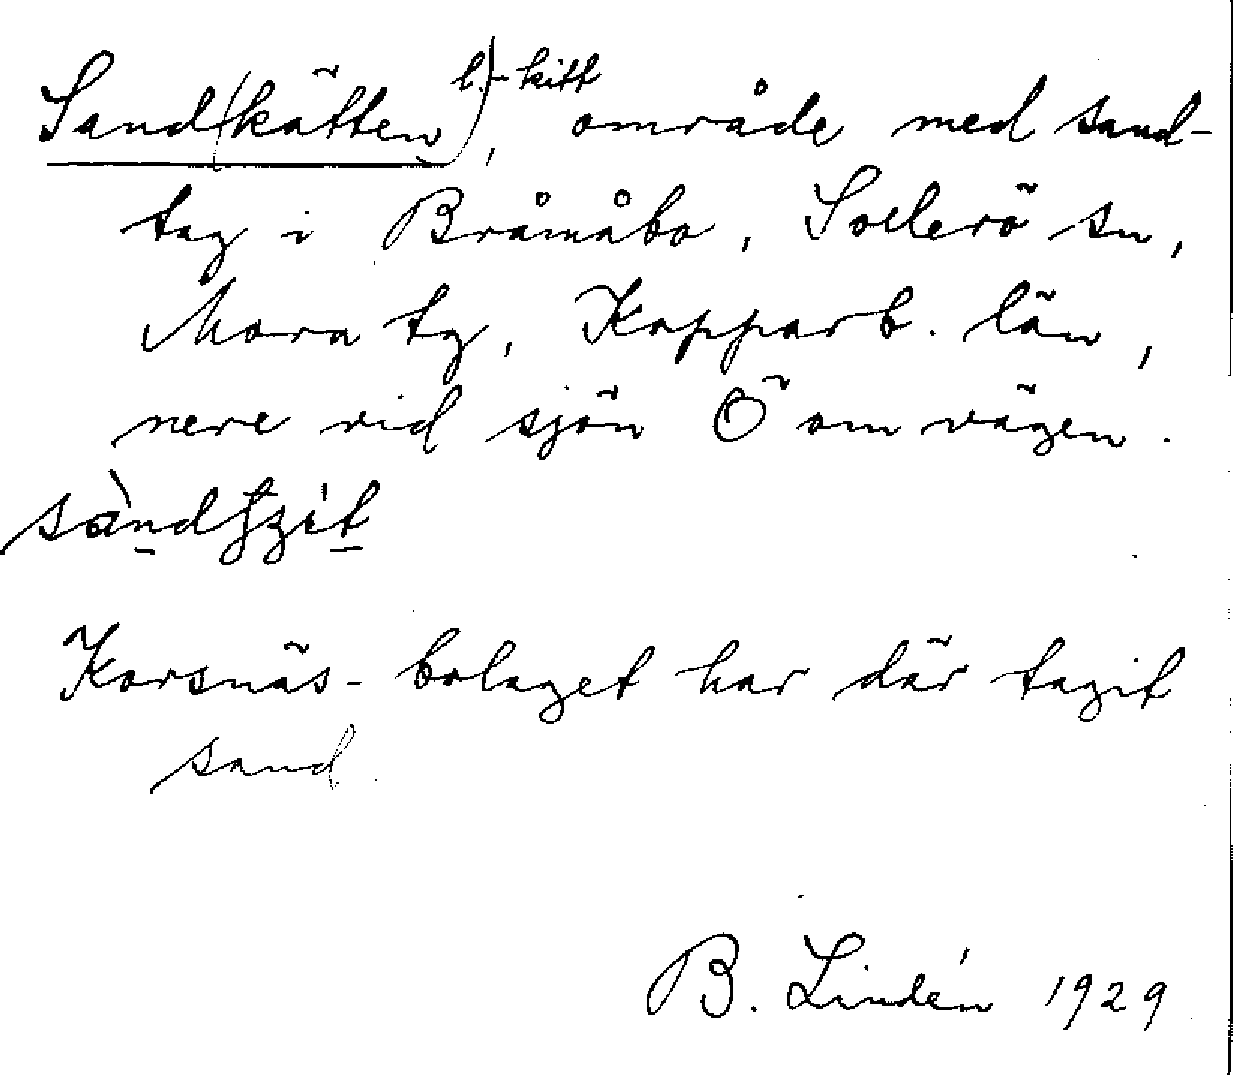 Sand(kätten) l. -kitt, område med sand-
tag i Bråmåbo, Sollerö sn,
Mora tg, Kopparb. län,
nere vid sjön Ö om vägen.
Korsnäs-bolaget har där tagit
sand.
B. Lindén 1929